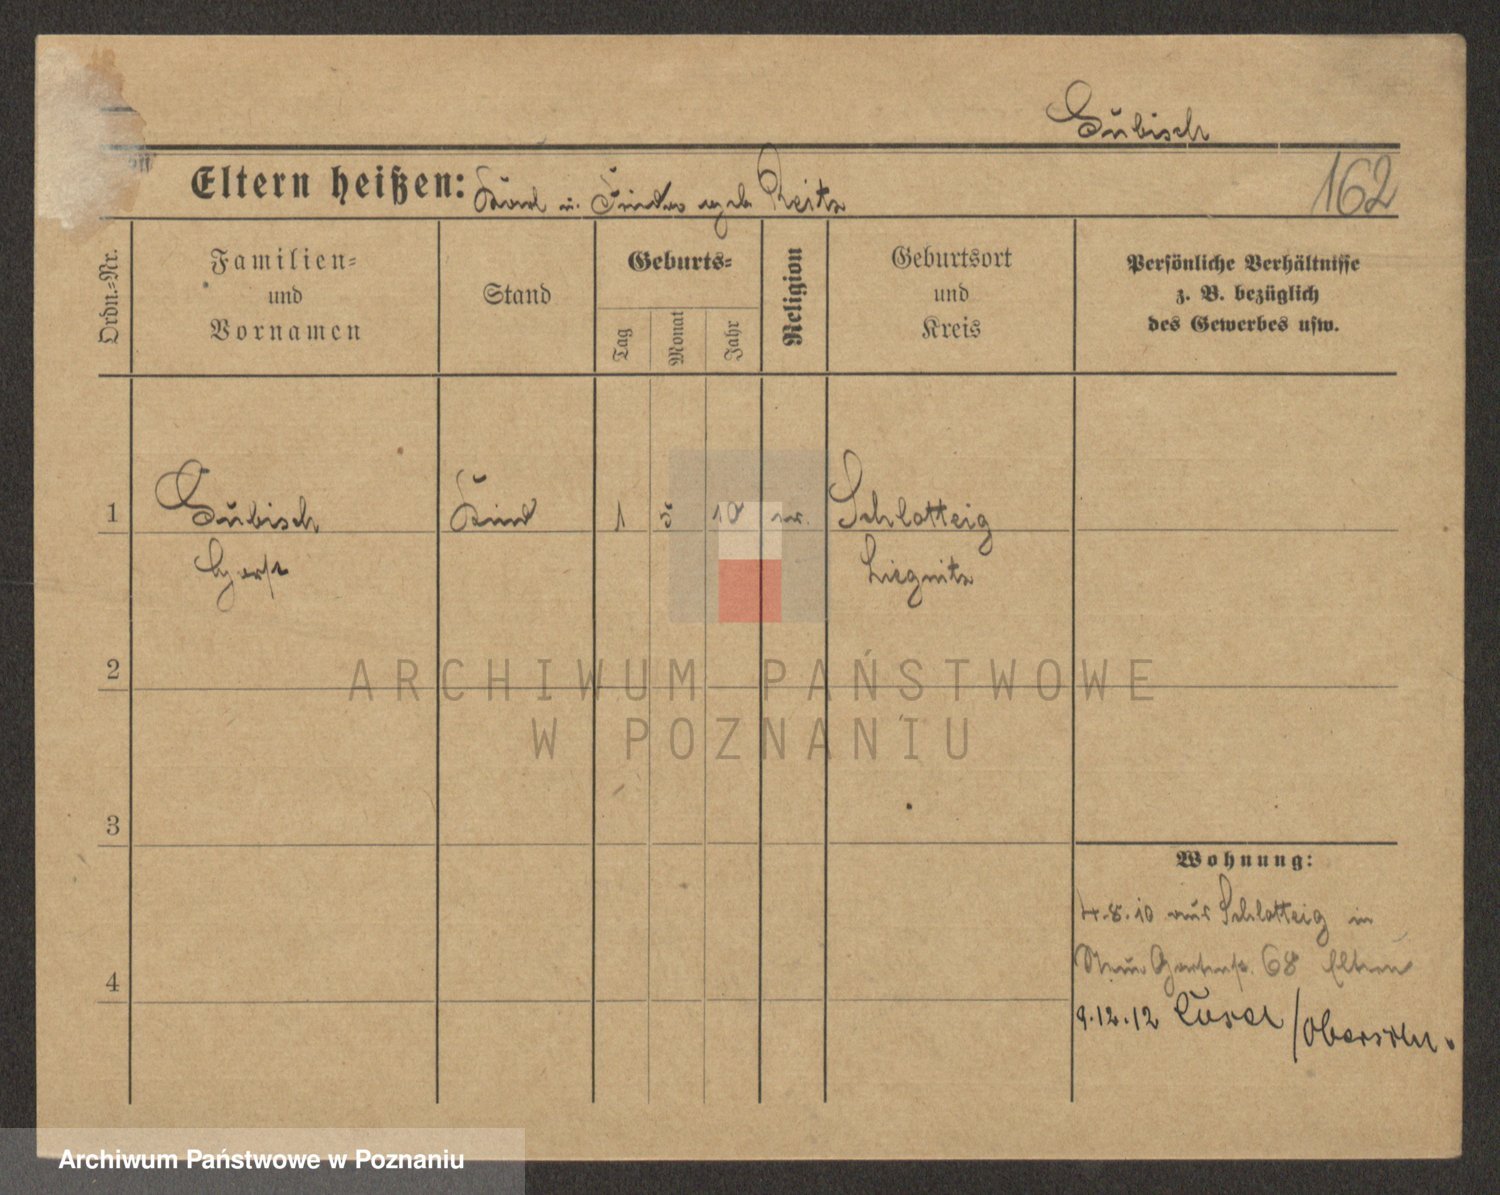 Gubisch
Eltern heißen: Karl u. geb Reitz
162
Ordn.-Nr.
Familien- und Vornamen
Stand
Geburts-
Tag
Monat
Jahr
Religion
Geburtsort und Kreis
Persönliche Verhältnisse z. B. bezüglich des Gewerbes usw.
1
Gubisch
Kind
1
5
10
ev.
Schlottnig
Horst
Liegnitz
2
ARCHIWUM PAŃSTWOWE
W POZNANIU
3
Wohnung:
4.8.10 aus Schlottnig in
68 Eltern
4
9.12.12 Cosel / Oberschl.
Archiwum Państwowe w Poznaniu